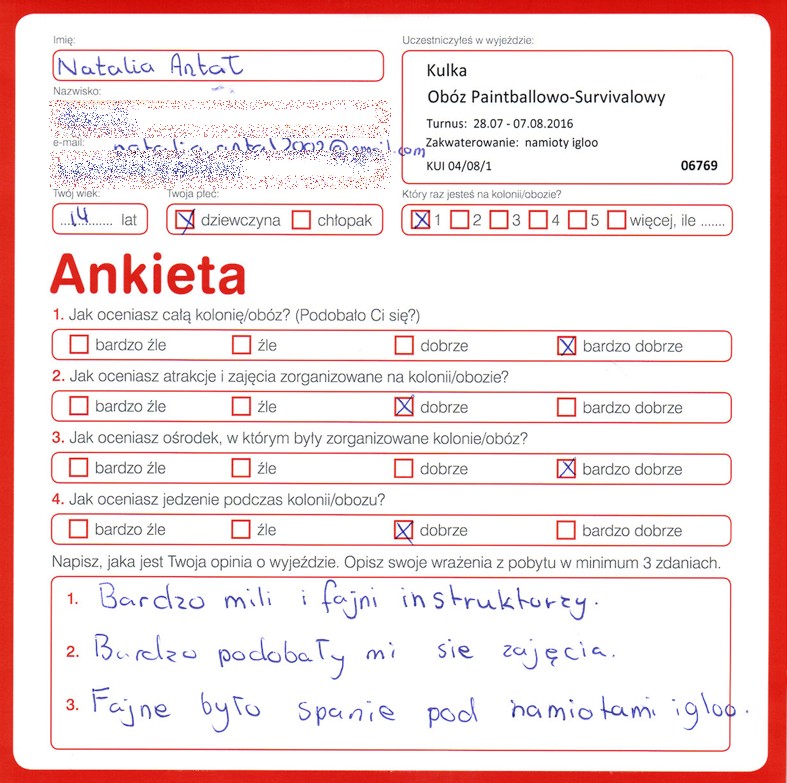 Imię:
Natalia Antał
Nazwisko:
e-mail: natalia.antal2002@gmail.com
Twój wiek:
14 lat
Twoja płeć:
dziewczyna chłopak
Uczestniczyłeś w wyjeździe:
Kulka
Obóz Paintballowo-Survivalowy
Turnus: 28.07 - 07.08.2016
Zakwaterowanie: namioty igloo
KUI 04/08/1 06769
Który raz jesteś na kolonii/obozie?
1 2 3 4 5 więcej, ile .......
Ankieta
1. Jak oceniasz całą kolonię/obóz? (Podobało Ci się?)
bardzo źle źle dobrze bardzo dobrze
2. Jak oceniasz atrakcje i zajęcia zorganizowane na kolonii/obozie?
bardzo źle źle dobrze bardzo dobrze
3. Jak oceniasz ośrodek, w którym były zorganizowane kolonie/obóz?
bardzo źle źle dobrze bardzo dobrze
4. Jak oceniasz jedzenie podczas kolonii/obozu?
bardzo źle źle dobrze bardzo dobrze
Napisz, jaka jest Twoja opinia o wyjeździe. Opisz swoje wrażenia z pobytu w minimum 3 zdaniach.
1. Bardzo mili i fajni instruktorzy.
2. Bardzo podobały mi sie zajęcia.
3. Fajne było spanie pod namiotami igloo.